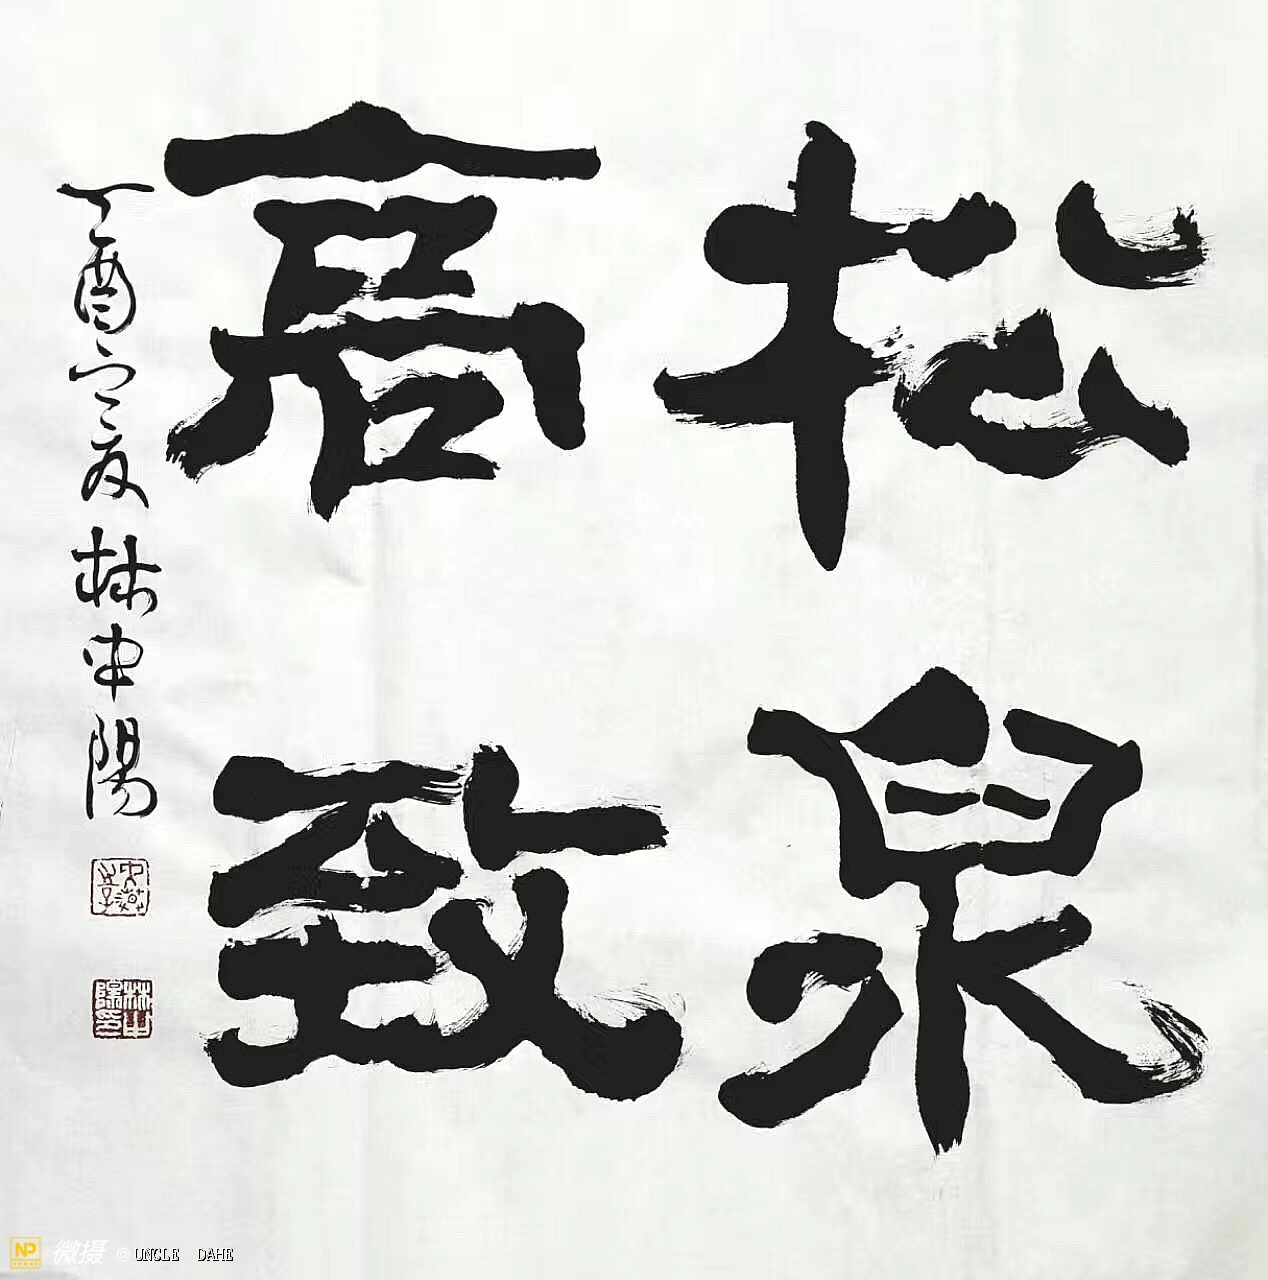 松泉
高致
丁酉之夏林中阳
林中陽印
NP 微摄 @UNCLE DAHE